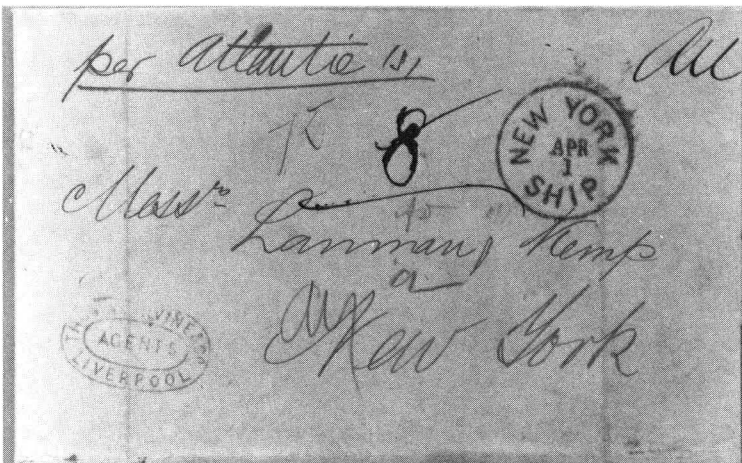 per Atlantic
8
NEW YORK
APR
1
SHIP
Messrs
Lanman & Kemp
New York
AGENTS
LIVERPOOL